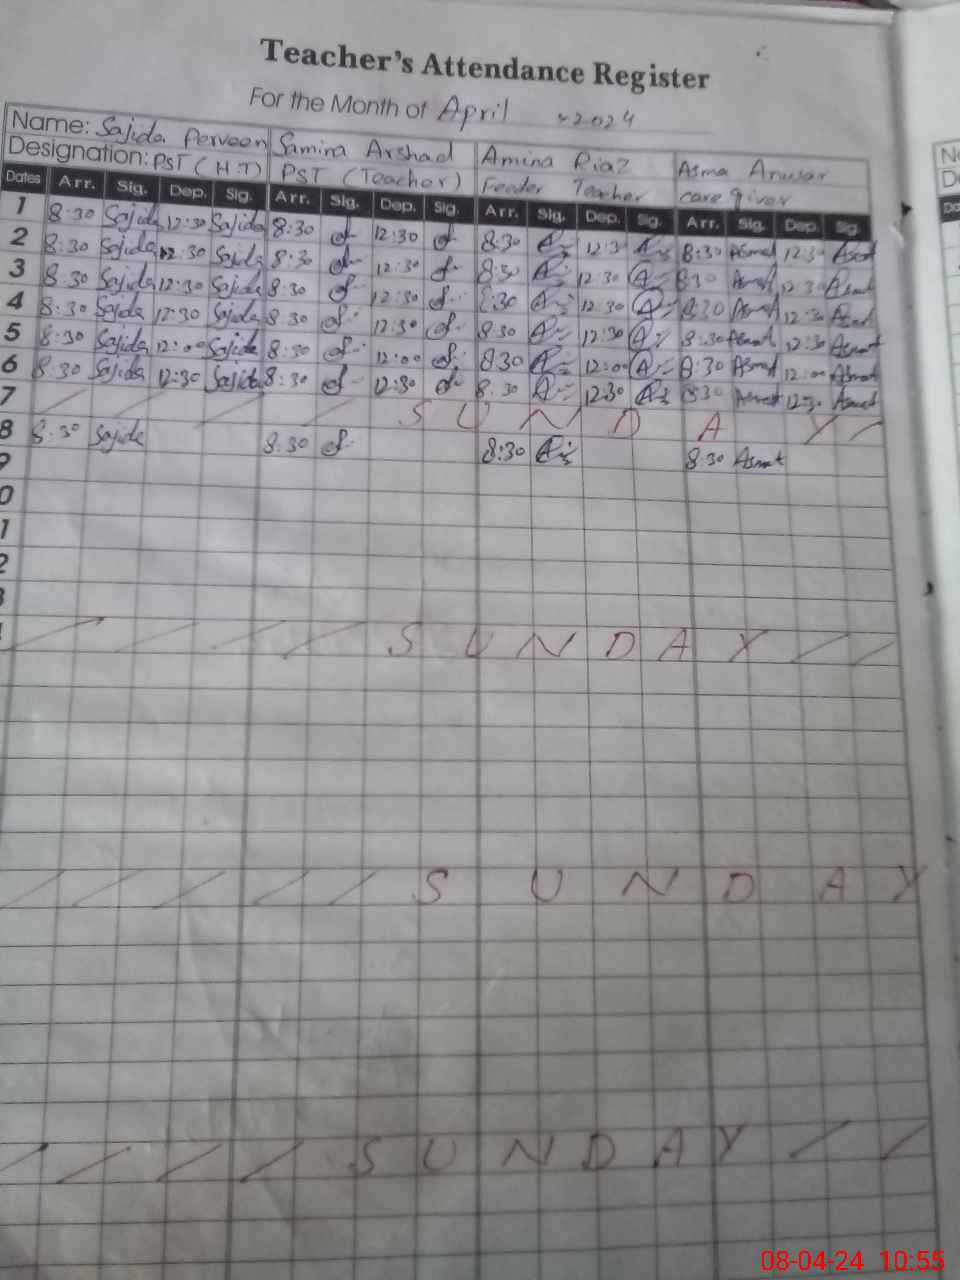 Teacher's Attendance Register
For the Month of April 2024
Name: Sajida Perveen Samina Arshad Amina Riaz Asma Anwar
Designation: PST (H.T) PST (Teacher) Feeder Teacher care giver
Dates Arr. Sig. Dep. Sig. Arr. Sig. Dep. Sig. Arr. Sig. Dep. Sig. Arr. Sig. Dep. Sig.
1 8:30 Sajida 12:30 Sajida 8:30 12:30 8:30 12:30 8:30 Asmat 12:30 Asmat
2 8:30 Sajida 12:30 Sajida 8:30 12:30 8:30 12:30 8:30 Asmat 12:30 Asmat
3 8:30 Sajida 12:30 Sajida 8:30 12:30 8:30 12:30 8:30 Asmat 12:30 Asmat
4 8:30 Sajida 12:30 Sajida 8:30 12:30 8:30 12:30 8:30 Asmat 12:30 Asmat
5 8:30 Sajida 12:00 Sajida 8:30 12:00 8:30 12:00 8:30 Asmat 12:00 Asmat
6 8:30 Sajida 12:30 Sajida 8:30 12:30 8:30 12:30 8:30 Asmat 12:30 Asmat
7 SUNDAY
8 8:30 Sajida 8:30 8:30 8:30 Asmat
9
0
1
2
3
SUNDAY
SUNDAY
SUNDAY
08-04-24 10:55